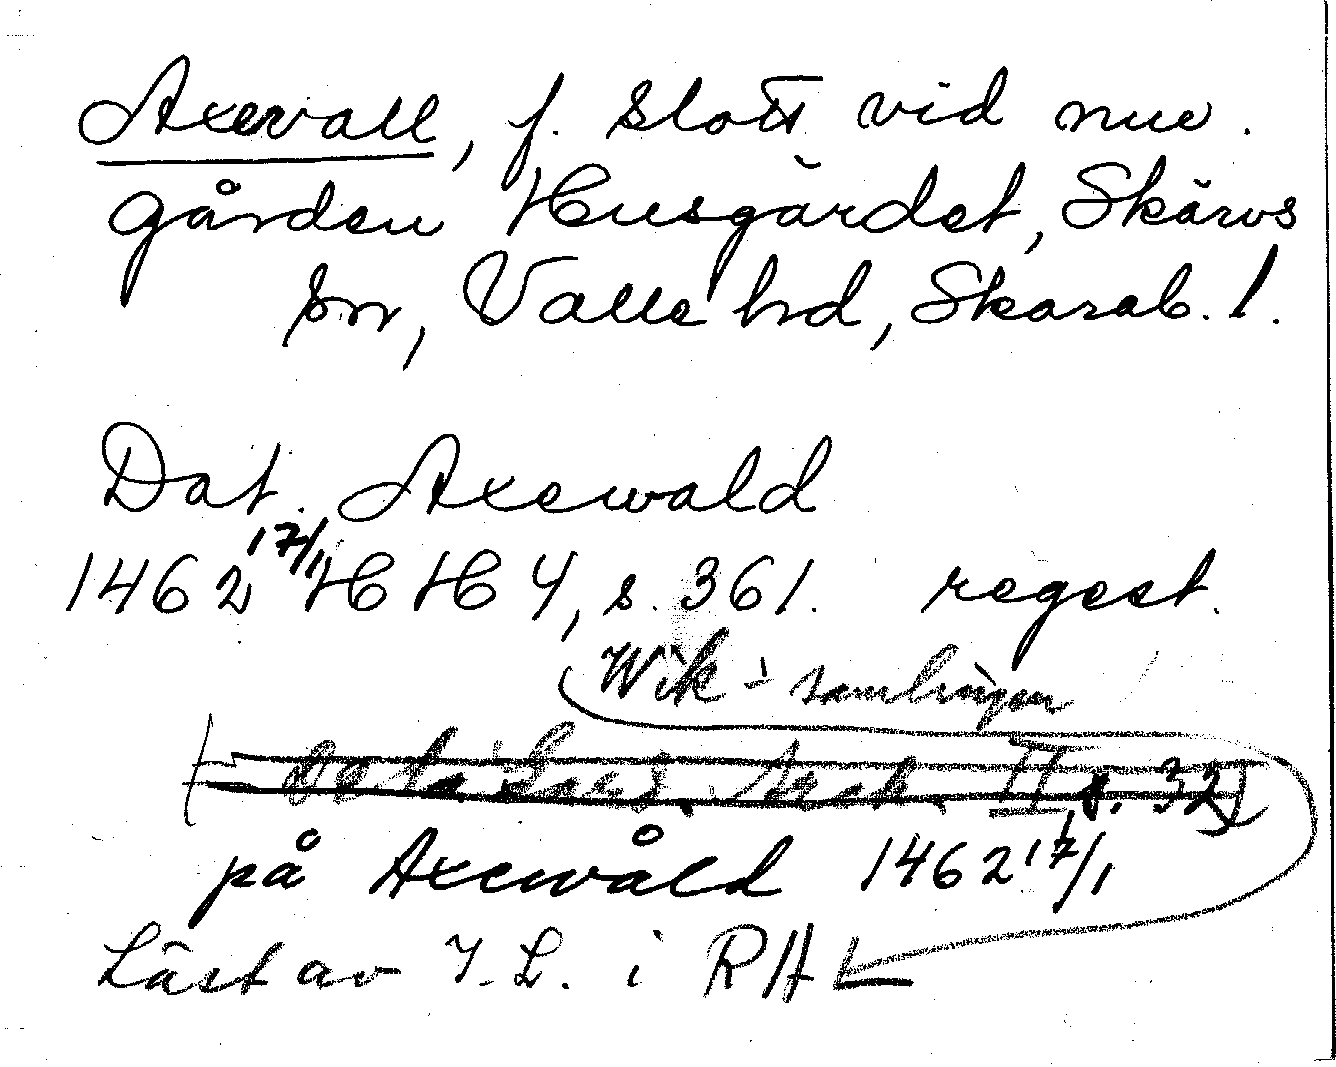 Axevall, f. slott vid nuv.
gården Husgärdet, Skärvs
sn, Valle hd, Skarab. l.
Dat. Axewald
1462 17/1 HH 4, s. 361. regest.
Wik-samlingen
II s. 32
på Axewåld 1462 17/1
Läst av I. L. i RA